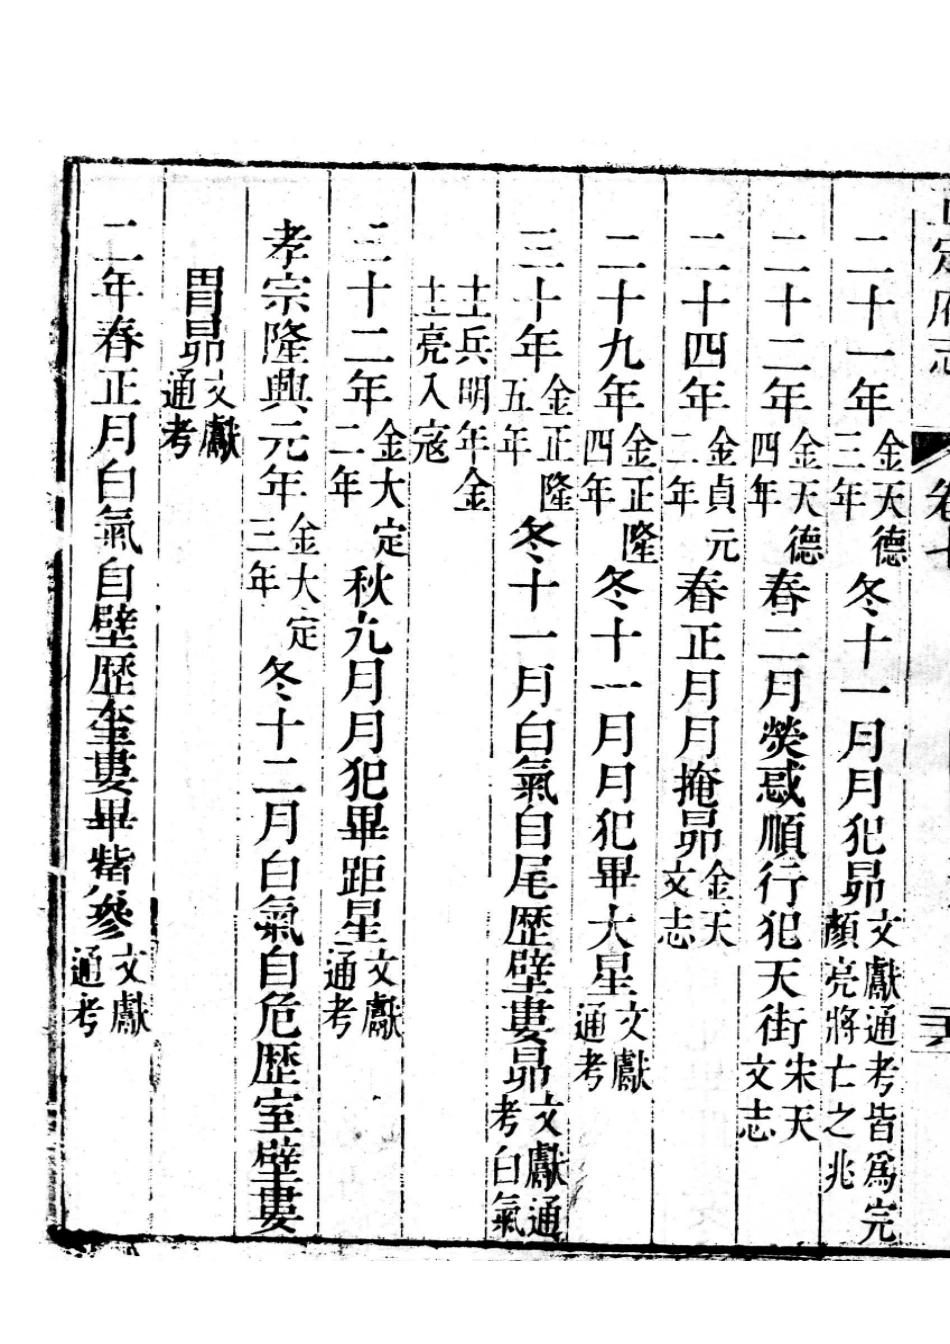 正定府志 卷七
二十一年金天德三年冬十一月月犯昴文獻通考皆爲完顏亮將亡之兆
二十二年金天德四年春二月熒惑順行犯天街宋天文志
二十四年金貞元二年春正月月掩昴金天文志
二十九年金正隆四年冬十一月月犯畢大星文獻通考
三十年金正隆五年冬十一月白氣自尾歷壁婁昴文獻通考白氣
主兵明年金主亮入寇
三十二年金大定二年秋九月月犯畢距星文獻通考
孝宗隆興元年金大定三年冬十二月白氣自危歷室壁婁
胃昴文獻通考
二年春正月白氣自壁歷奎婁畢觜參文獻通考